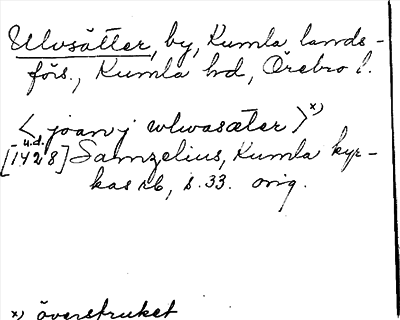 Ulvsätter, by, Kumla lands-
förs., Kumla hd, Örebro l.
<joan j wlwasæter> x)
u.d.
[1428] Samzelius, Kumla kyr-
kas rb, s. 33. orig.
x) överstruket